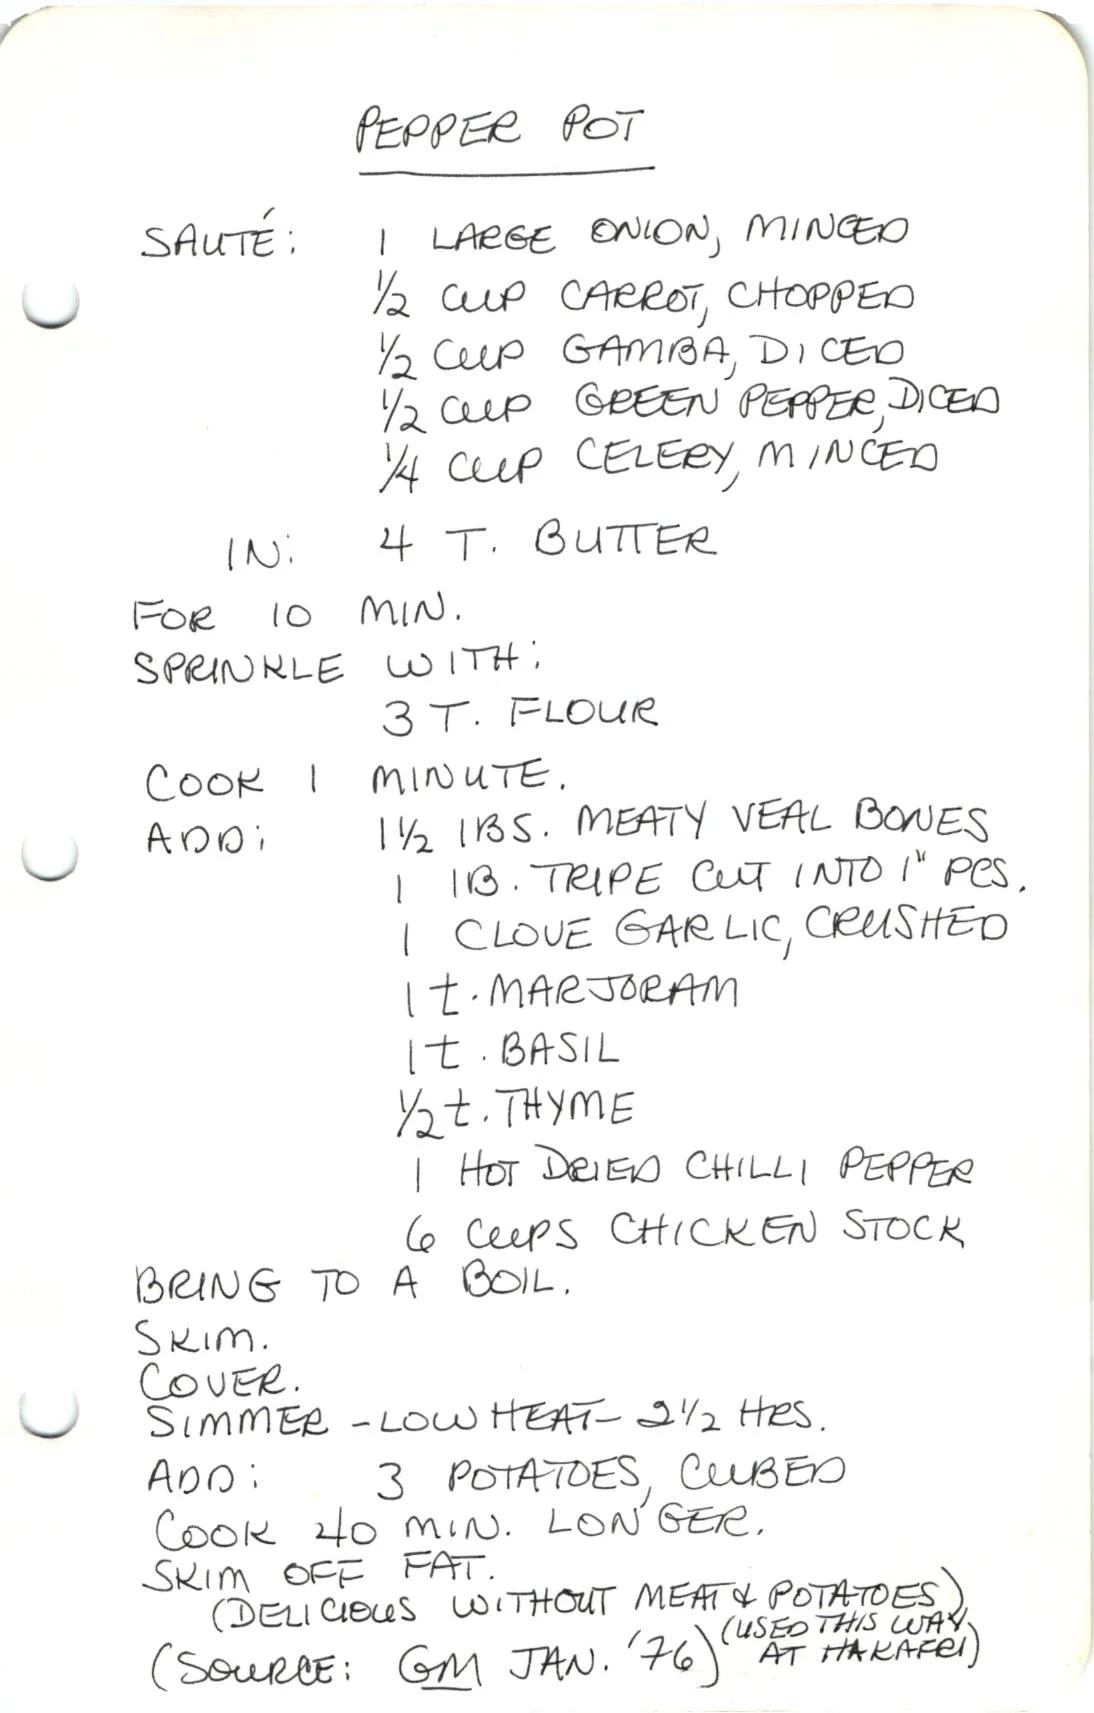 PEPPER POT
SAUTÉ: 1 LARGE ONION, MINCED
½ CUP CARROT, CHOPPED
½ CUP GAMBA, DICED
½ CUP GREEN PEPPER, DICED
¼ CUP CELERY, MINCED
IN: 4 T. BUTTER
FOR 10 MIN.
SPRINKLE WITH:
3 T. FLOUR
COOK 1 MINUTE.
ADD: 1½ lBS. MEATY VEAL BONES
1 lB. TRIPE CUT INTO 1" PCS.
1 CLOVE GARLIC, CRUSHED
1 t. MARJORAM
1 t. BASIL
½ t. THYME
1 HOT DRIED CHILLI PEPPER
6 CUPS CHICKEN STOCK
BRING TO A BOIL.
SKIM.
COVER.
SIMMER - LOW HEAT - 2½ HRS.
ADD: 3 POTATOES, CUBED
COOK 40 MIN. LONGER.
SKIM OFF FAT.
(DELICIOUS WITHOUT MEAT & POTATOES)
(USED THIS WAY
AT HAKAFRI)
(SOURCE: GM JAN. '76)